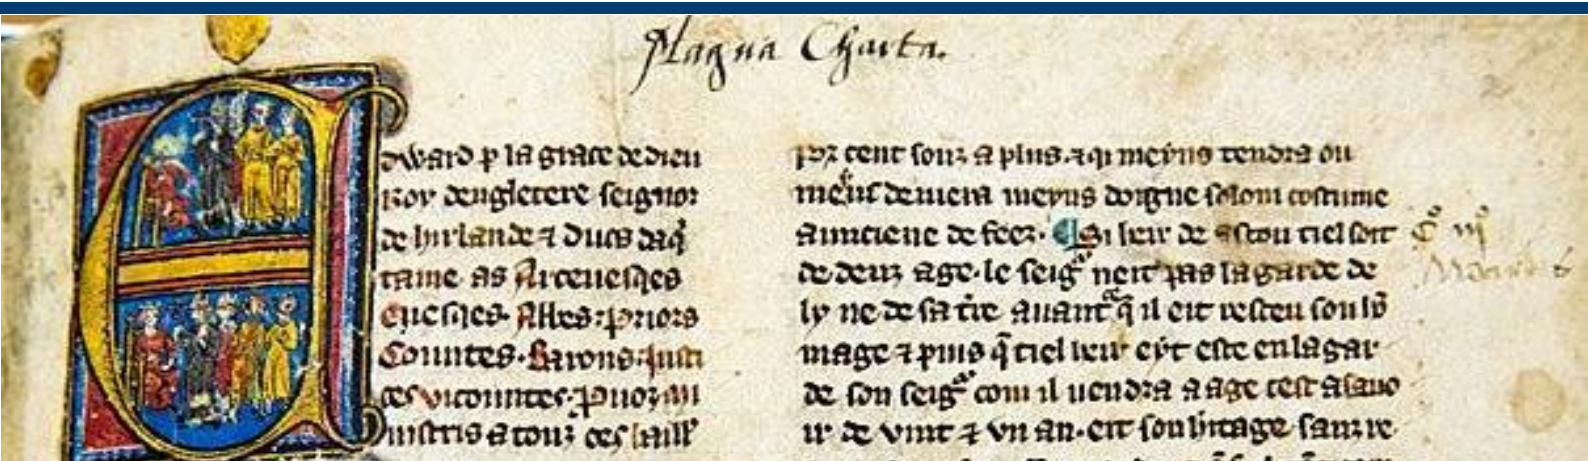 Magna Charta.
Edward p la grace de dieu
Roy dengletere seignor
de hirlande ⁊ Ducs daq̃
taine as Arceuesqes
Euesqes Abbes priors
Countes Barons Justi
ces vicountes
nistris a touz ces baill'
por cent souz a plus ⁊ qi meyns tendra ou
meyns doigne solom costume
aunciene de feez ¶ Si heir de ascou tiel soit
dedenz age le seig' neit pas la garde de
ly ne de sa t're auant q̃ il eit resceu son ho
mage ⁊ puis q̃ tiel heir eyt este en la gar
de son seig' com il uendra a age cest asauo
ir de vint ⁊ vn an eit son h'itage sanz re